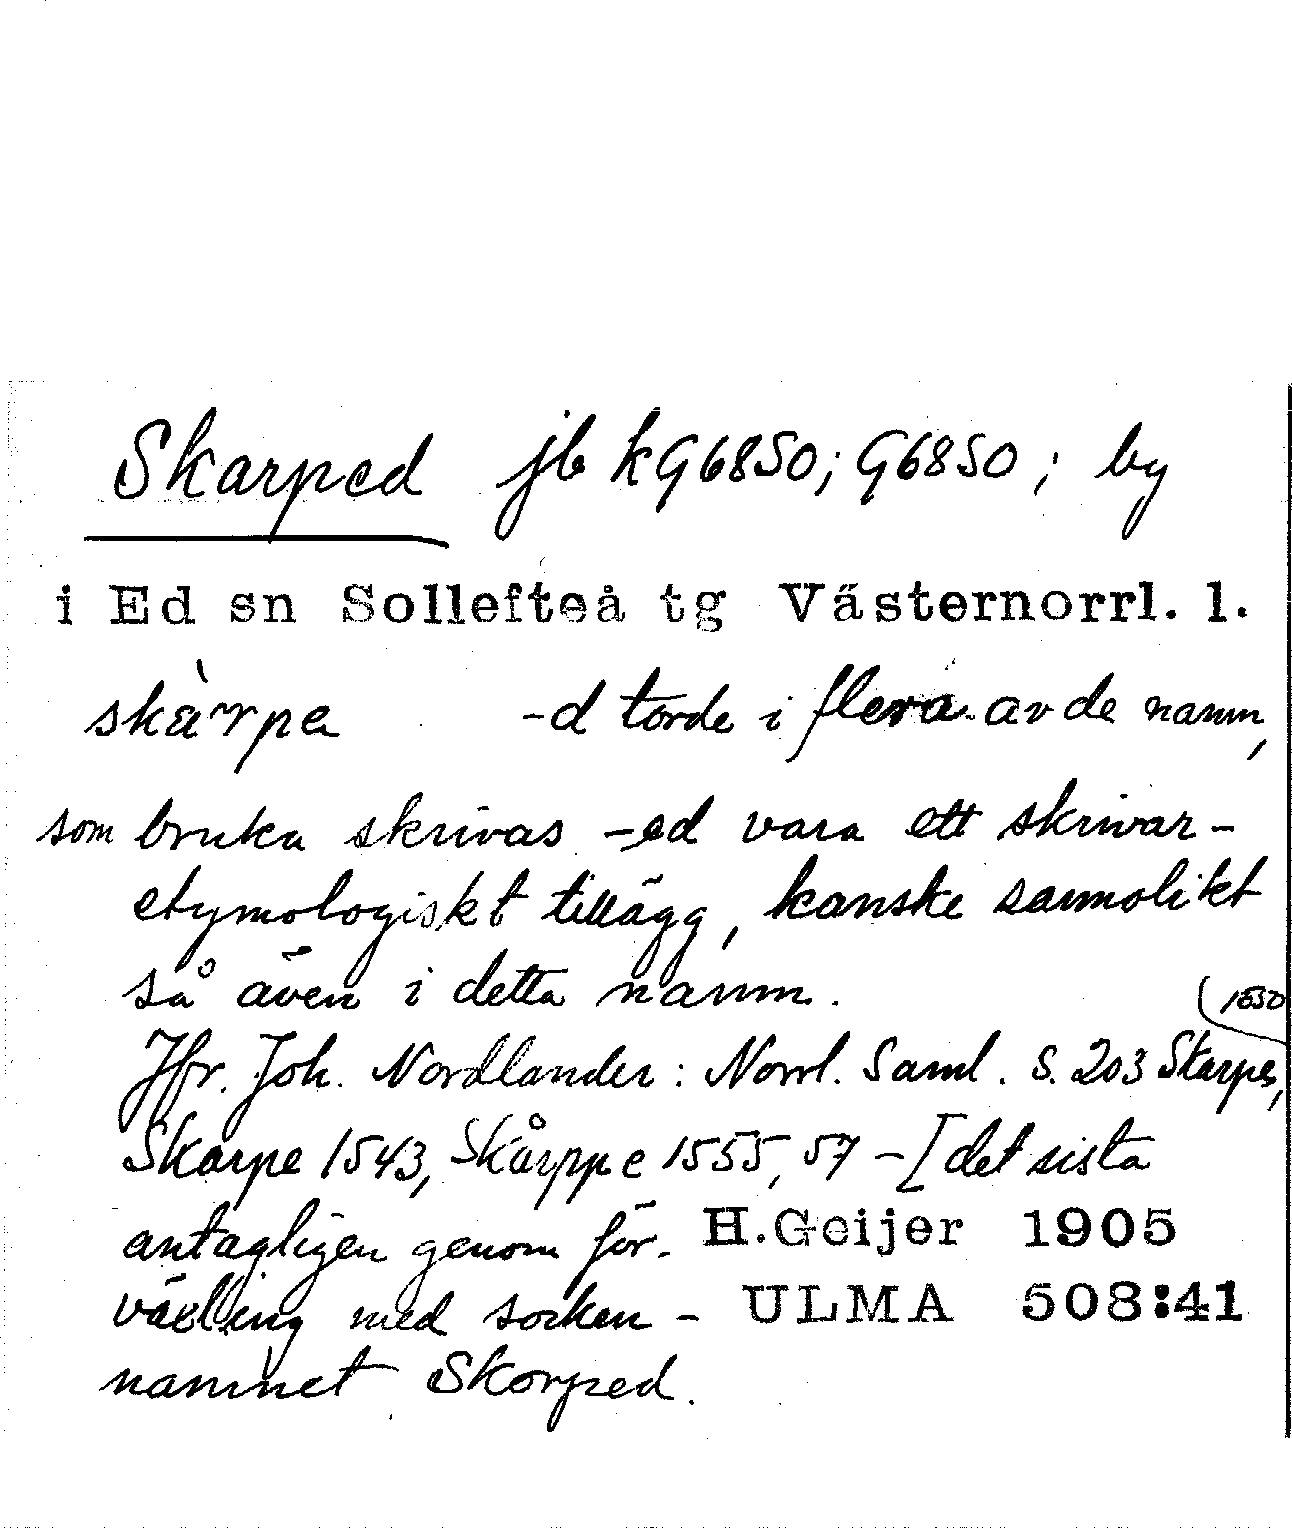 Skarped jb kG6850; G6850; by
i Ed sn Sollefteå tg Västernorrl. l.
skàrpe -d torde i flera av de namn,
som bruka skrivas -ed vara ett skrivar-
etymologiskt tillägg, kanske sannolikt
så även i detta namn.
Jfr. Joh. Nordlander: Norrl. Saml. S. 203 Skarpes, (1550
Skarpe 1543, Skårppe 1555, 57 - [det sista
antagligen genom för-
växling med socken-
namnet Skorped.
H.Geijer 1905
ULMA 508:41